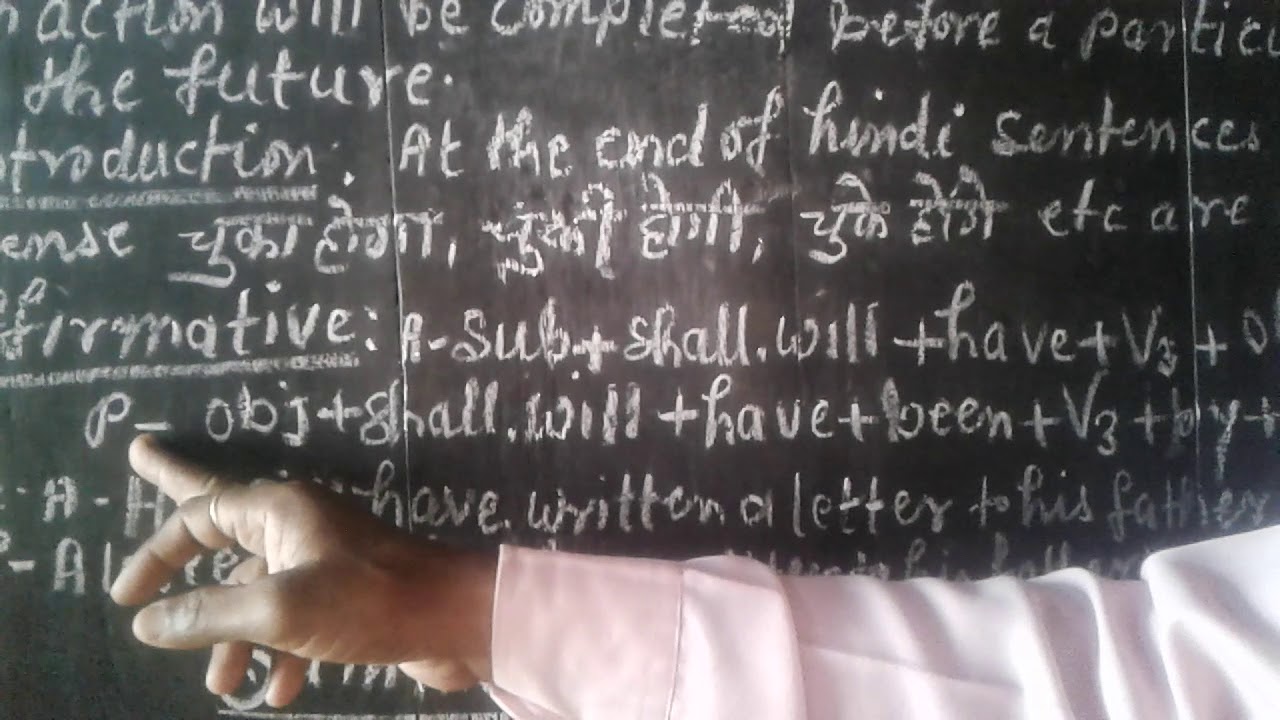 action will be completed before a partic
the future.
troduction: At the end of hindi sentences
ense चुका होगा, चुकी होगी, चुके होंगे etc are
ffirmative: A-Sub+shall.will+have+V3+O
P- obj+shall.will+have+been+V3+by+
A-H have written a letter to his father
P-A